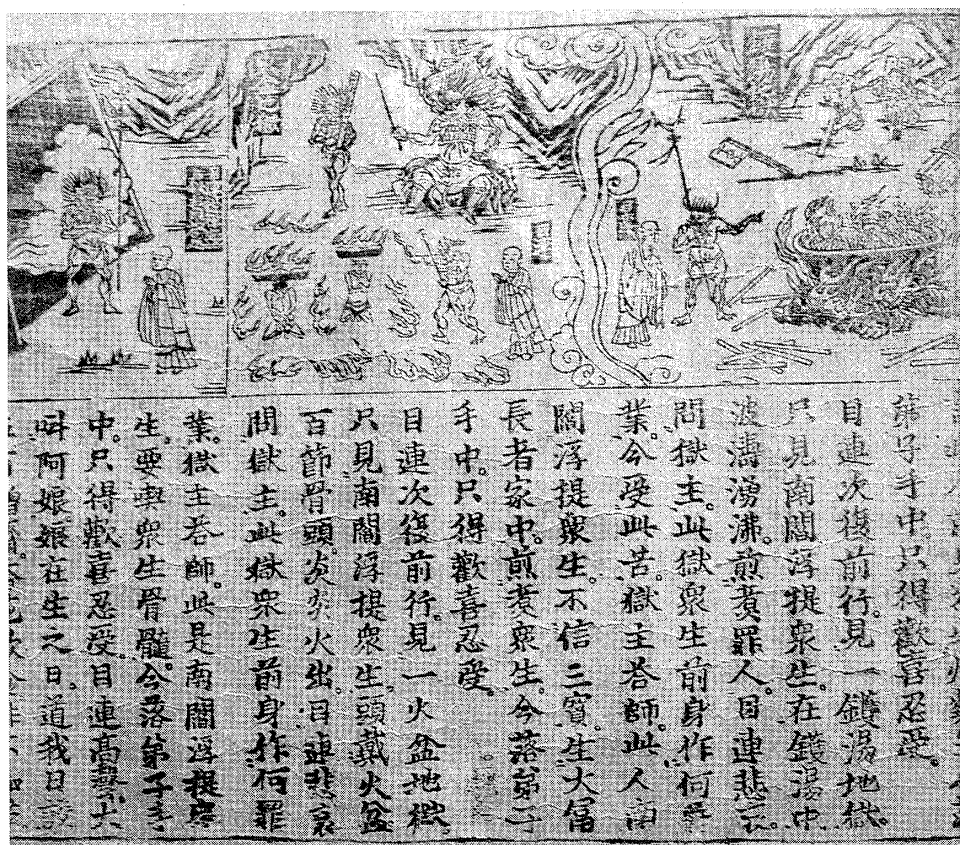 弟子手中。只得歡喜忍受。
目連次復前行。見一鑊湯地獄。
只見南閻浮提衆生。在鑊湯中
波濤湧沸。煎煑罪人。目連悲哀。
問獄主。此獄衆生前身作何罪
業。今受此苦。獄主荅師。此人南
閻浮提衆生。不信三寶。生大富
長者家中。煎煑衆生。今落弟子
手中。只得歡喜忍受。
目連次復前行。見一火盆地獄。
只見南閻浮提衆生。頭戴火盆
百節骨頭。炎炎火出。目連悲哀
問獄主。此獄衆生前身作何罪
業。獄主荅師。此是南閻浮提衆
生。要喫衆生骨髓。今落弟子手
中。只得歡喜忍受。目連高聲大
叫阿娘娘在生之日。道我日設